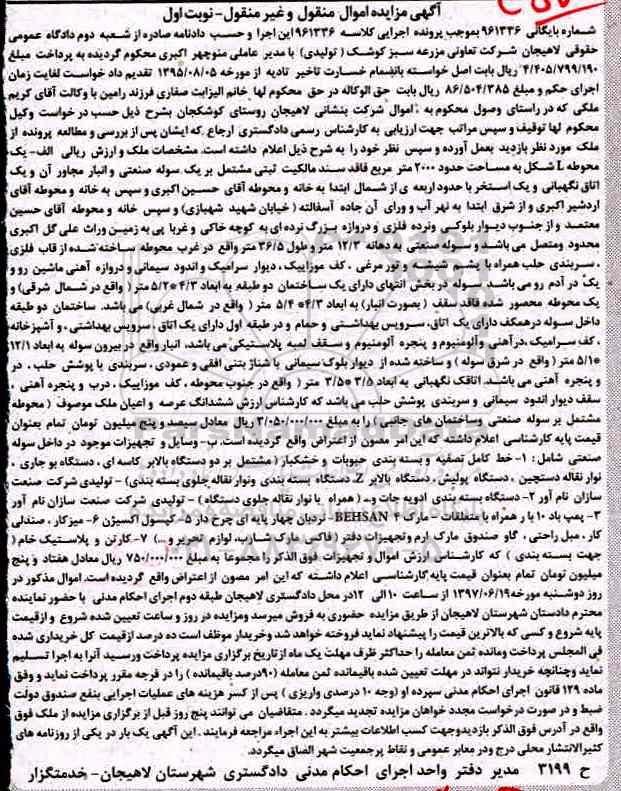 آگهی مزایده اموال منقول و غیر منقول - نوبت اول
شماره بایگانی ۹۶۱۳۳۶ بموجب پرونده اجرایی کلاسه ۹۶۱۳۳۶ این اجرا و حسب دادنامه صادره از شعبه دوم دادگاه عمومی
حقوقی لاهیجان شرکت تعاونی مزرعه سبز کوشک (تولیدی) با مدیر عاملی منوچهر اکبری محکوم گردیده به پرداخت مبلغ
۴/۴۰۵/۷۹۹/۱۹۰ ریال بابت اصل خواسته بانضمام خسارت تاخیر تادیه از مورخه ۱۳۹۵/۰۸/۰۵ تقدیم داد خواست لغایت زمان
اجرای حکم و مبلغ ۸۶/۵۰۴/۳۸۵ ریال بابت حق الوکاله در حق محکوم لها خانم الیزابت صفاری فرزند رامین با وکالت آقای کریم
ملکی که در راستای وصول محکوم به اموال شرکت بنشانی لاهیجان روستای کوشکجان بشرح ذیل حسب در خواست وکیل
محکوم لها توقیف و سپس مراتب جهت ارزیابی به کارشناس رسمی دادگستری ارجاع که ایشان پس از بررسی و مطالعه پرونده از
ملک مورد نظر بازدید بعمل آورده و سپس نظر خود را به شرح ذیل اعلام داشته است. مشخصات ملک و ارزش ریالی الف - یک
محوطه L شکل به مساحت حدود ۲۰۰۰ متر مربع فاقد سند مالکیت ثبتی مشتمل بر یک سوله صنعتی و انبار مجاور آن و یک
اتاق نگهبانی و یک استخر با حدود اربعه ی از شمال ابتدا به خانه و محوطه آقای حسین اکبری و سپس به خانه و محوطه آقای
اردشیر اکبری و از شرق ابتدا به نهر آب و ورای آن جاده آسفالته (خیابان شهید شهبازی) و سپس خانه و محوطه آقای حسین
معتمد و از جنوب دیوار بلوکی ونرده فلزی و دروازه بزرگ نرده ای به کوچه خاکی و غربا پی به زمین وراث علی گل اکبری
محدود ومتصل می باشد و سوله صنعتی به دهانه ۱۲/۳ متر و طول ۳۶/۵ متر واقع در غرب محوطه ساخته شده از قاب فلزی
، سربندی حلب همراه با پشم شیشه و تور مرغی ، کف موزاییک ، دیوار سرامیک و اندود سیمانی و دروازه آهنی ماشین رو و
یک در آدم رو می باشد سوله در بخش انتهای دارای یک ساختمان دو طبقه به ابعاد ۴/۳*۵/۲ متر (واقع در شمال شرقی) و
یک محوطه محصور شده فاقد سقف (بصورت انبار) به ابعاد ۴/۳*۵/۴ متر (واقع در شمال غربی) می باشد. ساختمان دو طبقه
داخل سوله در همکف دارای یک اتاق ، سرویس بهداشتی و حمام و در طبقه اول دارای یک اتاق ، سرویس بهداشتی ، و آشپزخانه
، کف سرامیک ،درآهنی وآلومنیوم و پنجره آلومنیوم و سقف لمبه پلاستیکی می باشد، انبار واقع در بیرون سوله به ابعاد ۱۲/۱
*۵/۱ متر (واقع در شرق سوله) و ساخته شده از دیوار بلوک سیمانی با شناژ بتنی افقی و عمودی ، سربندی با پوشش حلب ، در
و پنجره آهنی می باشد. اتاقک نگهبانی به ابعاد ۳/۵*۳/۵ متر (واقع در جنوب محوطه ، کف موزاییک ، درب و پنجره آهنی ،
سقف دیوار اندود سیمانی و سربندی پوشش حلب می باشد که کارشناس ارزش ششدانگ عرصه و اعیان ملک موصوف (محوطه
مشتمل بر سوله صنعتی و ساختمان های جانبی) را به مبلغ ۳/۰۵۰/۰۰۰/۰۰۰ ریال معادل سیصد و پنج میلیون تومان تمام بعنوان
قیمت پایه کارشناسی اعلام داشته که این امر مصون از اعتراض واقع گردیده است. ب- وسایل و تجهیزات موجود در داخل سوله
صنعتی شامل : ۱- خط کامل تصفیه و بسته بندی حبوبات و خشکبار (مشتمل بر دو دستگاه بالابر کاسه ای ، دستگاه بو جاری ،
نوار نقاله دستچین ، دستگاه پولیش ، دستگاه بالابر Z، دستگاه بسته بندی ونوار نقاله جلوی بسته بندی) - تولیدی شرکت صنعت
سازان نام آور ۲- دستگاه بسته بندی ادویه جات و... (همراه با نوار نقاله جلوی دستگاه) - تولیدی شرکت صنعت سازان نام آور
۳- پمپ باد ۱۰ با ر همراه با متعلقات - مارک BEHSAN ۴- نردبان چهار پایه ای چرخ دار ۵- کپسول اکسیژن ۶- میز کار ، صندلی
کار ، مبل راحتی ، گاو صندوق مارک ارم وتجهیزات دفتر (فاکس مارک شارپ، لوازم تحریر و ...) ۷- کارتن و پلاستیک خام (
جهت بسته بندی) که کارشناس ارزش اموال و تجهیزات فوق الذکر را مجموعا به مبلغ ۷۵۰/۰۰۰/۰۰۰ ریال معادل هفتاد و پنج
میلیون تومان تمام بعنوان قیمت پایه کارشناسی اعلام داشته که این امر مصون از اعتراض واقع گردیده است. اموال مذکور در
روز دوشنبه مورخه ۱۳۹۷/۰۶/۱۹ از ساعت ۱۰ الی ۱۲ در محل دادگستری لاهیجان طبقه دوم اجرای احکام مدنی با حضور نماینده
محترم دادستان شهرستان لاهیجان از طریق مزایده حضوری به فروش میرسد ومزایده در روز و ساعت تعیین شده شروع و از قیمت
پایه شروع و کسی که بالاترین قیمت را پیشنهاد نماید فروخته خواهد شد وخریدار موظف است ده درصد از قیمت کل خریداری شده
فی المجلس پرداخت ومانده ثمن معامله را حداکثر ظرف مهلت یک ماه از تاریخ برگزاری مزایده پرداخت ورسید آنرا به اجرا تسلیم
نماید وچنانچه خریدار نتواند در مهلت تعیین شده باقیمانده ثمن معامله (۹۰درصد باقیمانده) را در فرجه مقرر پرداخت نماید و وفق
ماده ۱۲۹ قانون اجرای احکام مدنی سپرده او (وجه ۱۰ درصدی واریزی) پس از کسر هزینه های عملیات اجرایی بنفع صندوق دولت
ضبط و در صورت درخواست مجدد خواهان مزایده تجدید میگردد . متقاضیان می توانند پنج روز قبل از برگزاری مزایده از ملک فوق
واقع در آدرس فوق الذکر بازدیدوجهت کسب اطلاعات بیشتر به این اجراء مراجعه فرمایند . این آگهی یک بار در یکی از روزنامه های
کثیرالانتشار محلی درج ودر معابر عمومی و نقاط پرجمعیت شهر الصاق میگردد.
ح ۳۱۹۹ مدیر دفتر واحد اجرای احکام مدنی دادگستری شهرستان لاهیجان - خدمتگزار